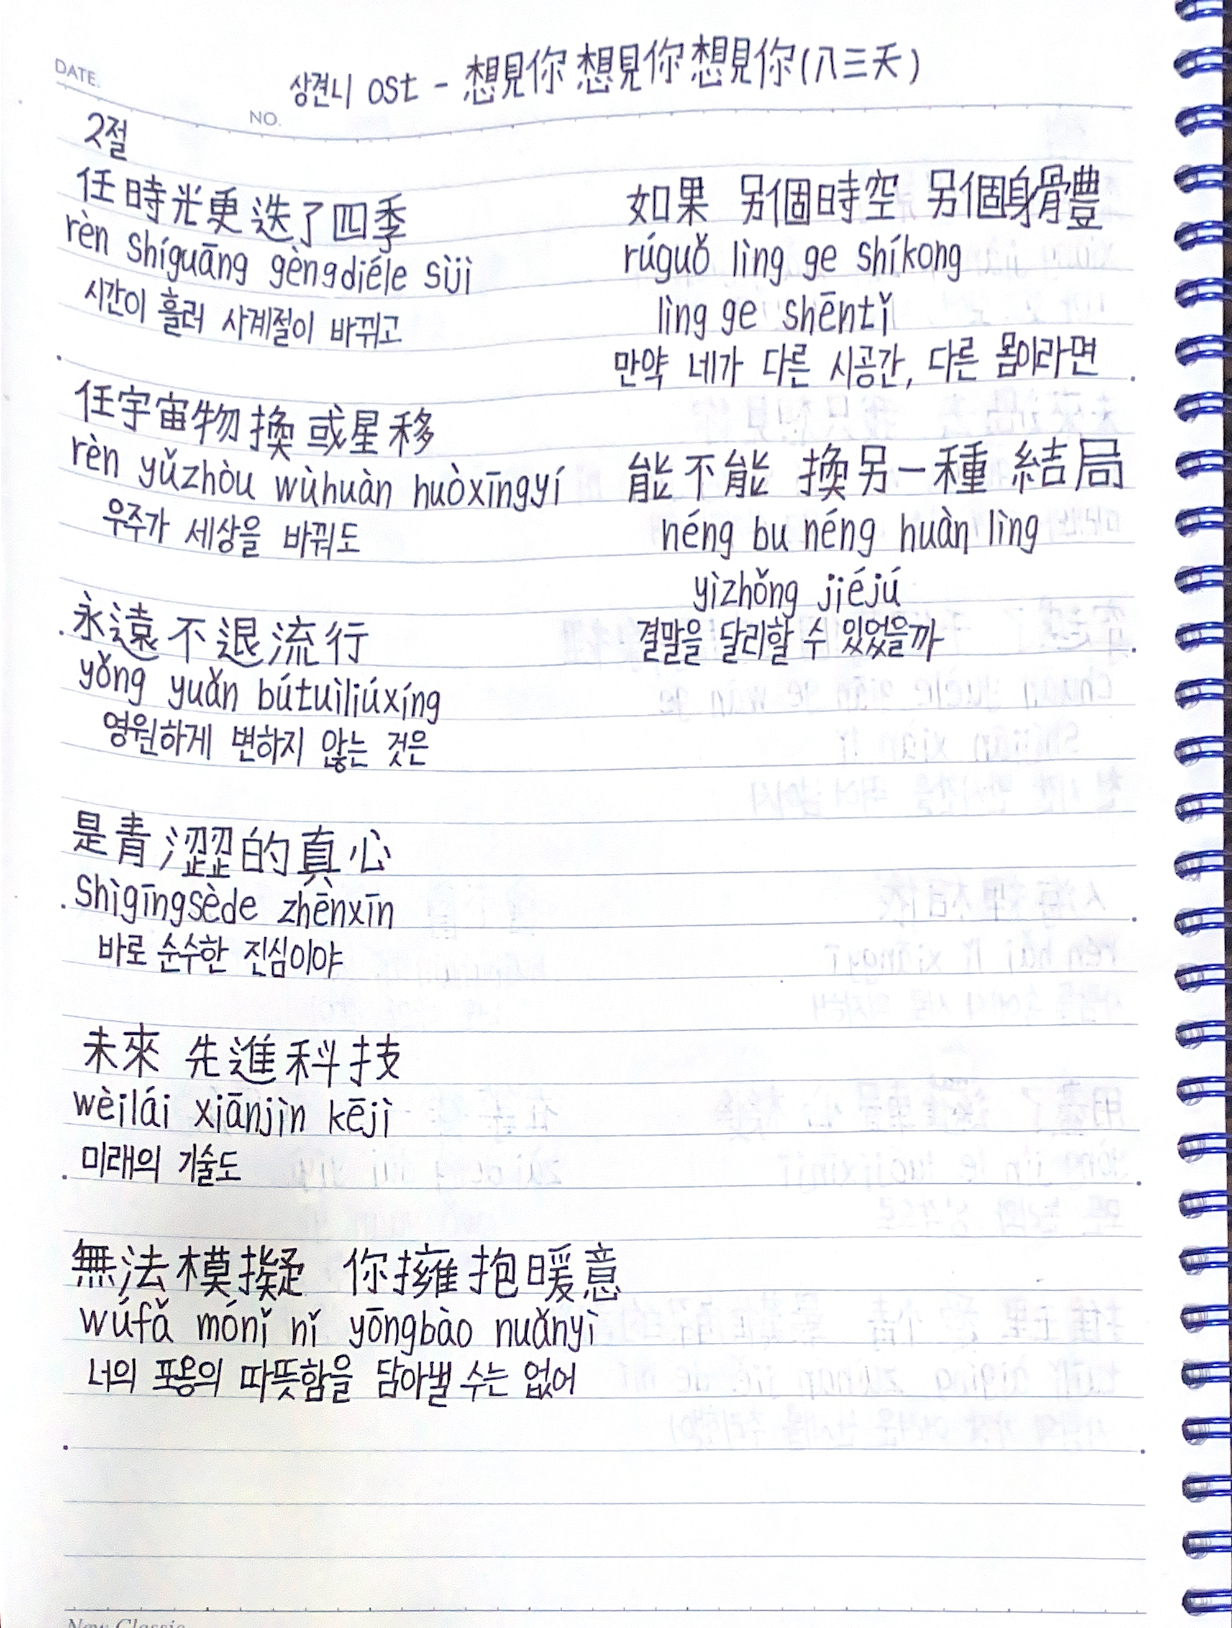 DATE.
NO.
상견니 ost - 想見你 想見你 想見你(八三夭)
2절
任時光更迭了四季
rèn shíguāng gèngdiéle sìjì
시간이 흘러 사계절이 바뀌고
任宇宙物換或星移
rèn yǔzhòu wùhuàn huòxīngyí
우주가 세상을 바꿔도
永遠不退流行
yǒng yuǎn bútuìliúxíng
영원하게 변하지 않는 것은
是青澀的真心
shìgīngsède zhēnxīn
바로 순수한 진심이야
未來 先進科技
wèilái xiānjìn kējì
미래의 기술도
無法模擬 你擁抱暖意
wúfǎ mónǐ nǐ yōngbào nuǎnyì
너의 포옹의 따뜻함을 담아낼 수는 없어
如果 另個時空 另個身體
rúguǒ lìng ge shíkong
lìng ge shēntǐ
만약 네가 다른 시공간, 다른 몸이라면
能不能 換另一種 結局
néng bu néng huàn lìng
yìzhǒng jiéjú
결말을 달리할 수 있었을까